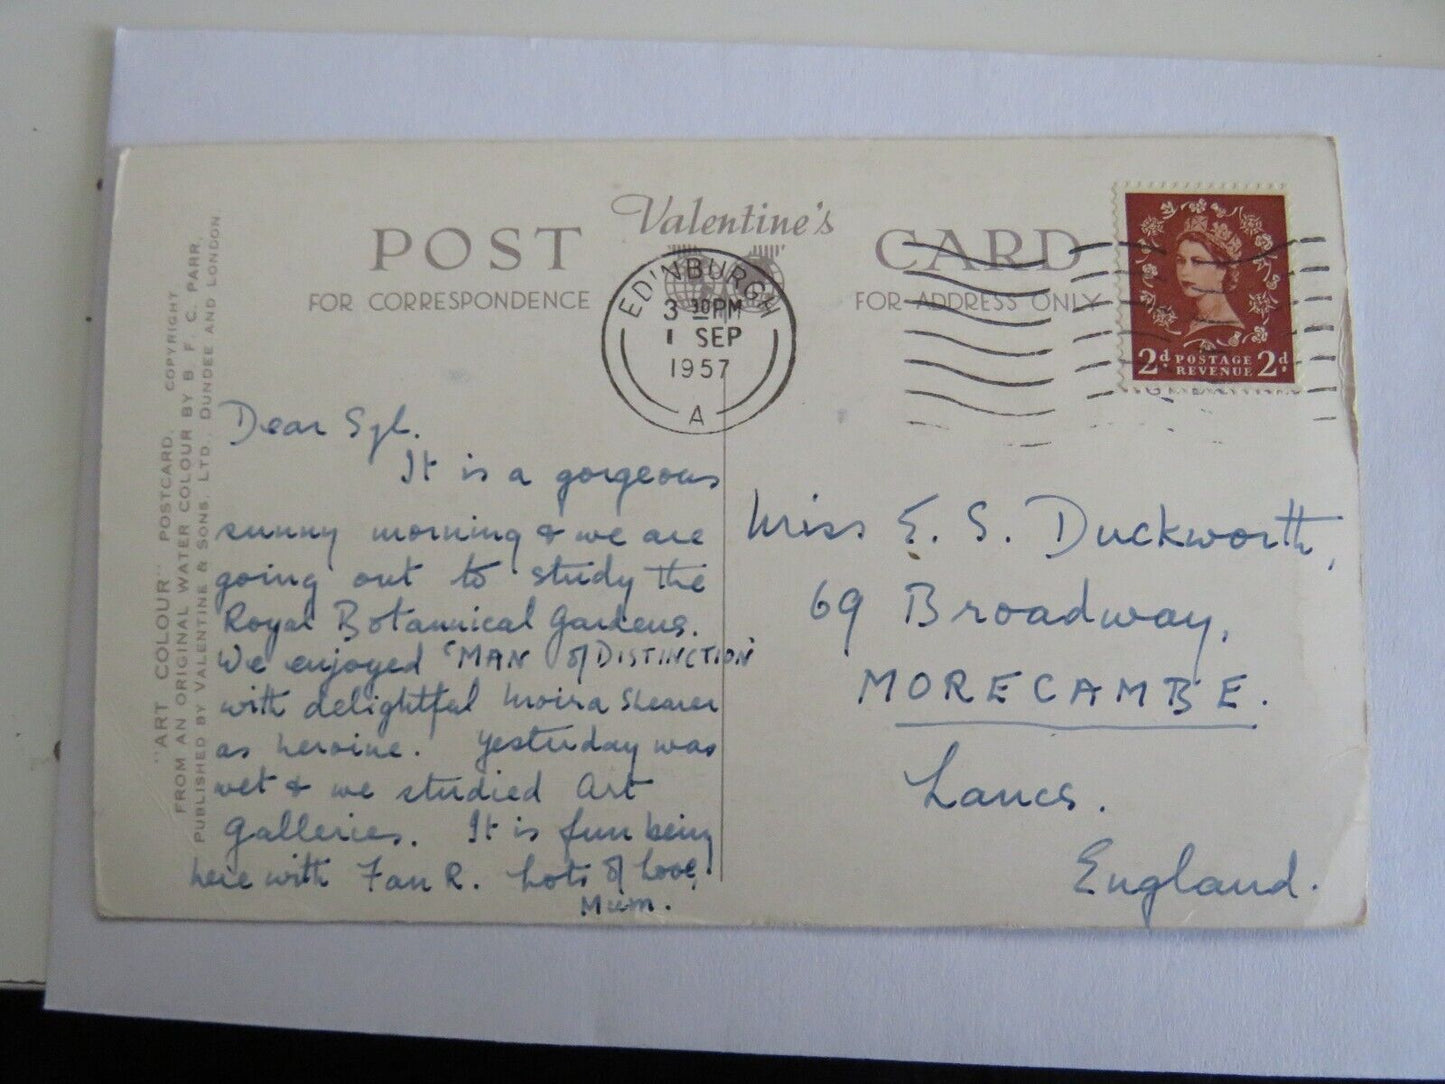 POST Valentine's CARD
FOR CORRESPONDENCE
FOR ADDRESS ONLY
EDINBURGH
3 30 PM
1 SEP
1957
A
2d POSTAGE REVENUE 2d
"ART COLOUR" POSTCARD. COPYRIGHT
FROM AN ORIGINAL WATER COLOUR BY B. F. C. PARR.
PUBLISHED BY VALENTINE & SONS. LTD. DUNDEE AND LONDON
Dear Syl.
It is a gorgeous
sunny morning & we are
going out to study the
Royal Botannical Gardens.
We enjoyed 'MAN of DISTINCTION'
with delightful Moira Shearer
as heroine. Yesterday was
wet & we studied Art
Galleries. It is fun being
here with Fan R. Lots of Love,
Mum.
Miss E. S. Duckworth,
69 Broadway,
MORECAMBE.
Lancs.
England.